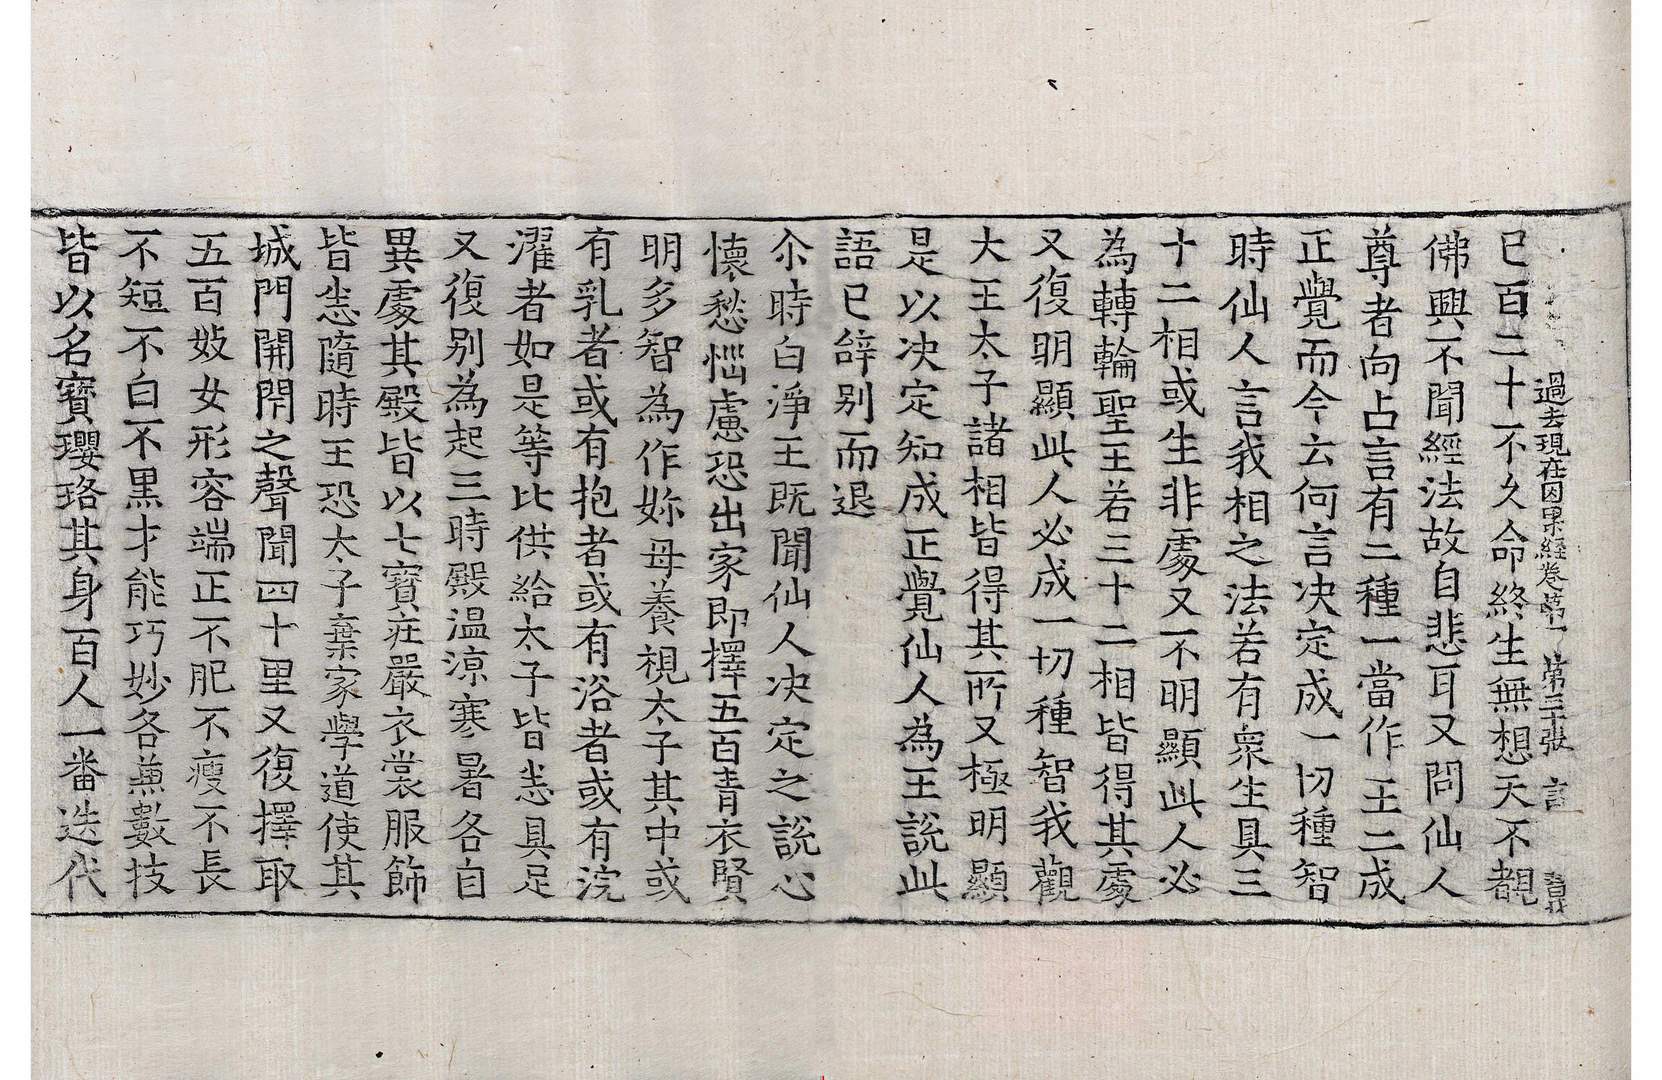 過去現在因果經卷第一 第三十張 言
已百二十不久命終生無想天不覩
佛興不聞經法故自悲耳又問仙人
尊者向占言有二種一當作王二成
正覺而今云何言决定成一切種智
時仙人言我相之法若有衆生具三
十二相或生非處又不明顯此人必
為轉輪聖王若三十二相皆得其處
又復明顯此人必成一切種智我觀
大王太子諸相皆得其所又極明顯
是以决定知成正覺仙人為王說此
語已辝別而退
尒時白淨王既聞仙人决定之說心
懷愁惱慮恐出家即擇五百青衣賢
明多智為作妳母養視太子其中或
有乳者或有抱者或有浴者或有浣
濯者如是等比供給太子皆悉具足
又復別為起三時殿温涼寒暑各自
異處其殿皆以七寶莊嚴衣裳服飾
皆悉隨時王恐太子棄家學道使其
城門開閇之聲聞四十里又復擇取
五百妓女形容端正不肥不瘦不長
不短不白不黒才能巧妙各兼數技
皆以名寶瓔珞其身百人一番迭代